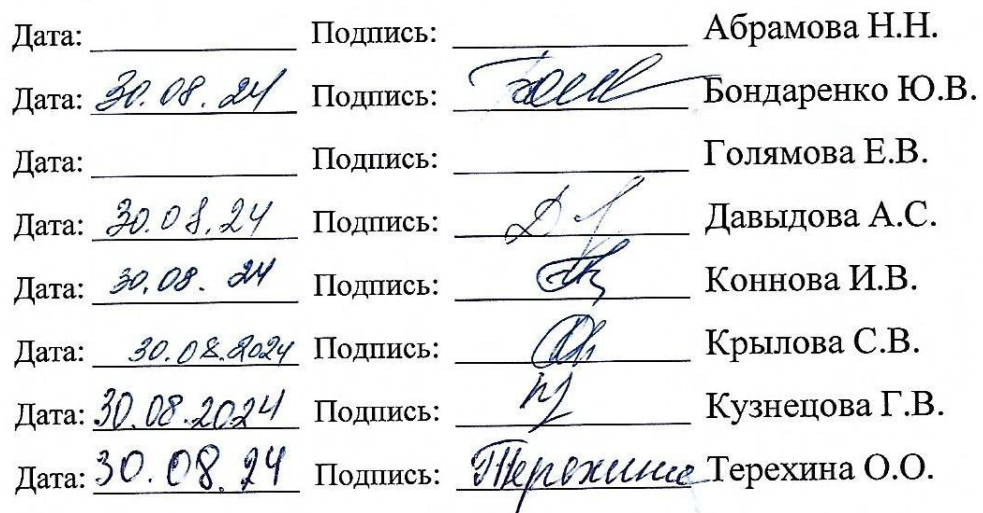 Дата: ____________ Подпись: ____________ Абрамова Н.Н.
Дата: 30.08.24 Подпись: ____________ Бондаренко Ю.В.
Дата: ____________ Подпись: ____________ Голямова Е.В.
Дата: 30.08.24 Подпись: ____________ Давыдова А.С.
Дата: 30.08.24 Подпись: ____________ Коннова И.В.
Дата: 30.08.2024 Подпись: ____________ Крылова С.В.
Дата: 30.08.2024 Подпись: ____________ Кузнецова Г.В.
Дата: 30.08.24 Подпись: Терехина Терехина О.О.